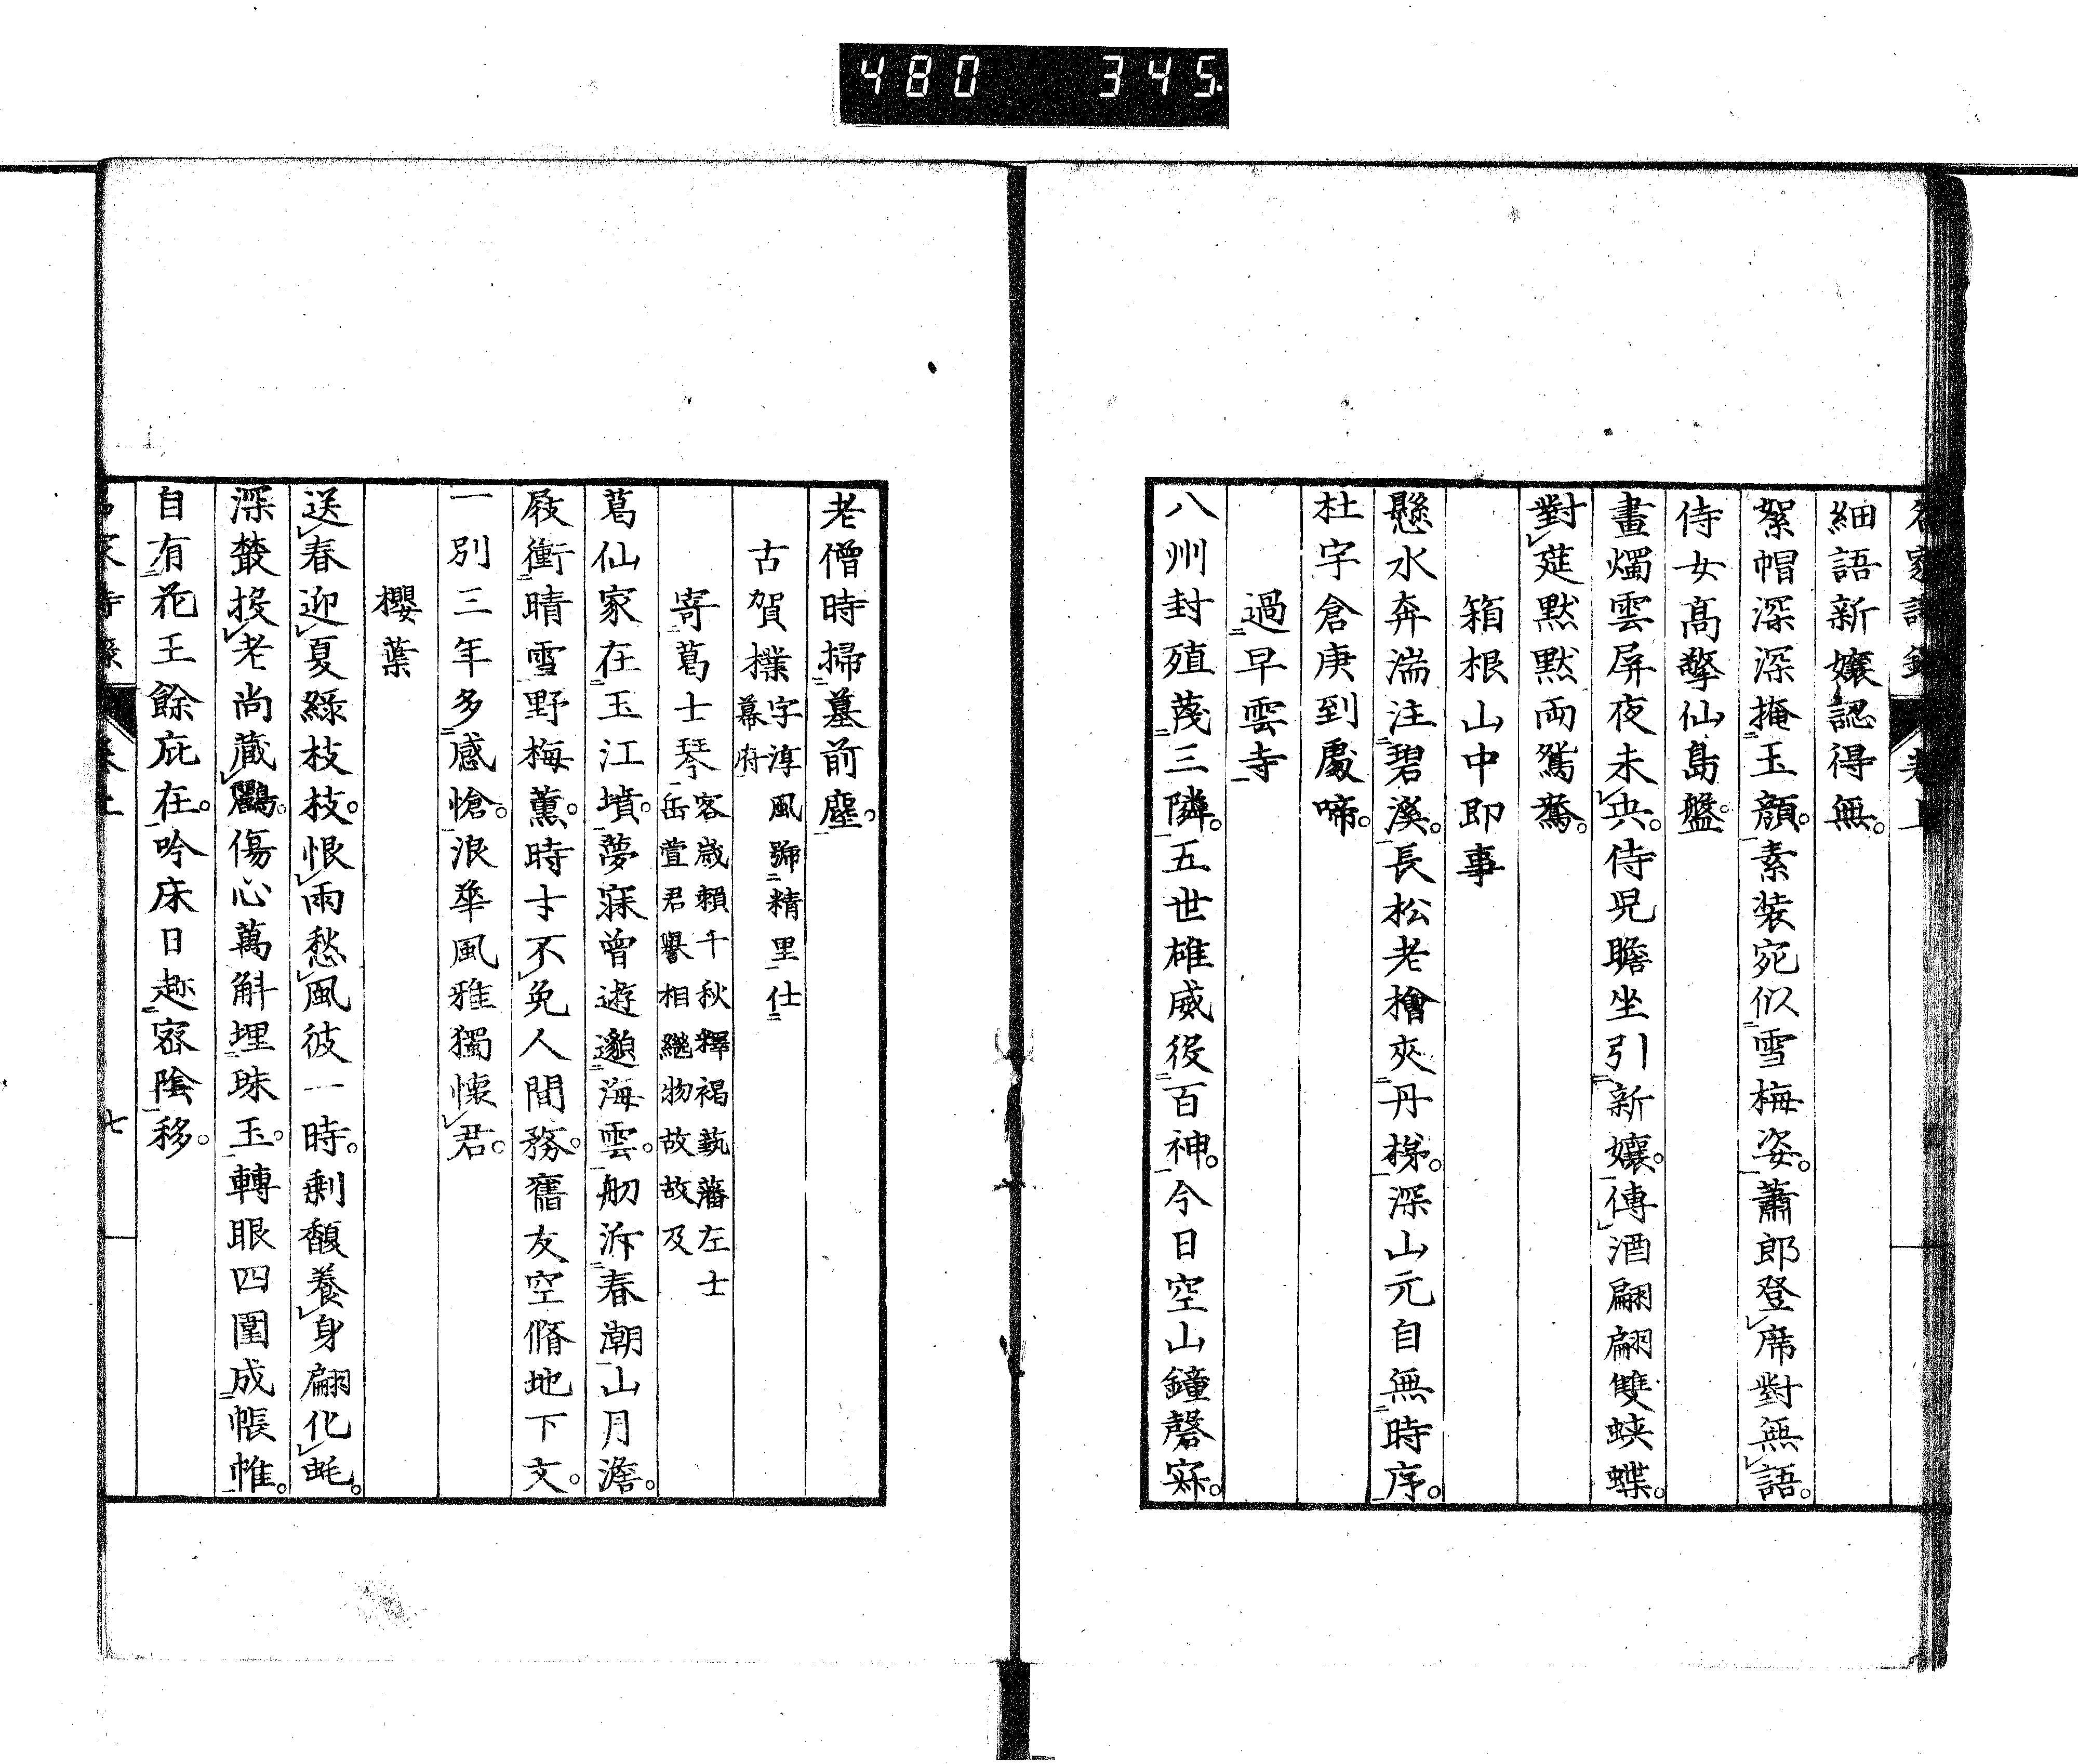 480 345
細語新孃認得無。
絮帽深深掩玉顔。素装宛似雪梅姿。蕭郎登席對無語。
侍女髙擎仙島盤。
畫燭雲屏夜未央。侍兒瞻坐引新孃。傳酒翩翩雙蛺蝶。
對筵黙黙両鴛鴦。
箱根山中即事
懸水奔湍注碧溪。長松老檜夾丹梯。深山元自無時序。
杜宇倉庚到處啼。
過早雲寺
八州封殖茂三隣。五世雄威役百神。今日空山鐘磬寂。
老僧時掃墓前塵。
古賀樸字淳風號精里仕
幕府
寄葛士琴客歳頼千秋釋褐藝藩左士
岳萱君譽相繼物故故及
葛仙家在玉江墳。夢寐曾遊邈海雲。舠泝春潮山月澹。
屐衝晴雪野梅薫。時士不免人間務。舊友空脩地下文。
一別三年多感愴。浪華風雅獨懐君。
櫻葉
送春迎夏緑枝枝。恨雨愁風彼一時。剰馥養身翩化蚝。
深藂投老尚蔵鸝。傷心萬斛埋珠玉。轉眼四圍成帳帷。
自有花王餘庇在。吟床日趂宻陰移。
七